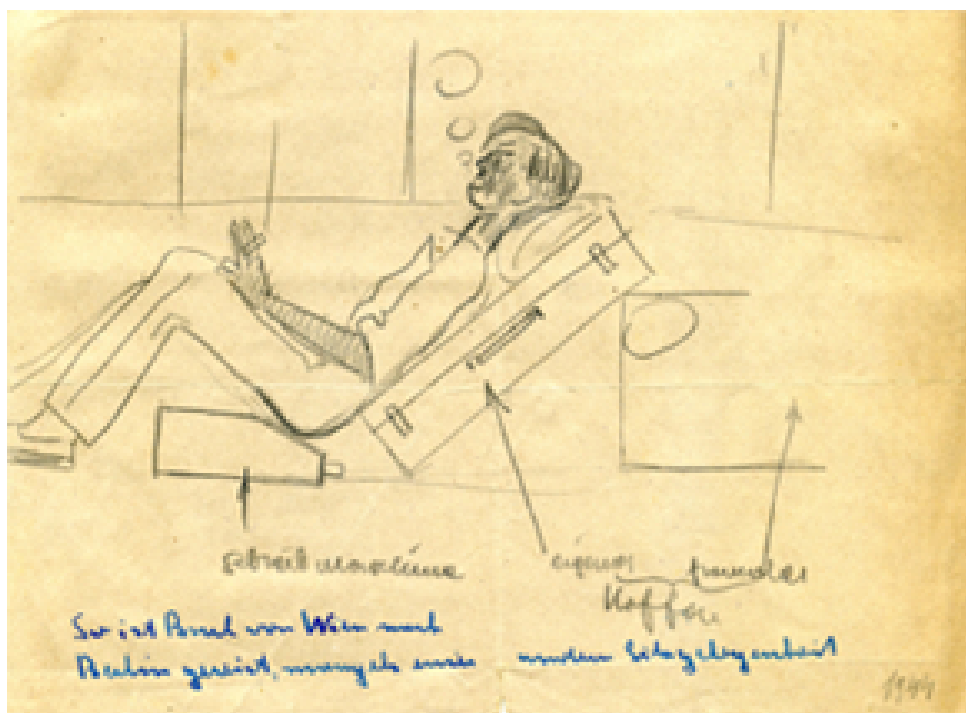 Schreibmaschine eigener fremder
Koffer
So ist von Wien nach
Berlin gereist, mangels einer andern Sitzgelegenheit
1944